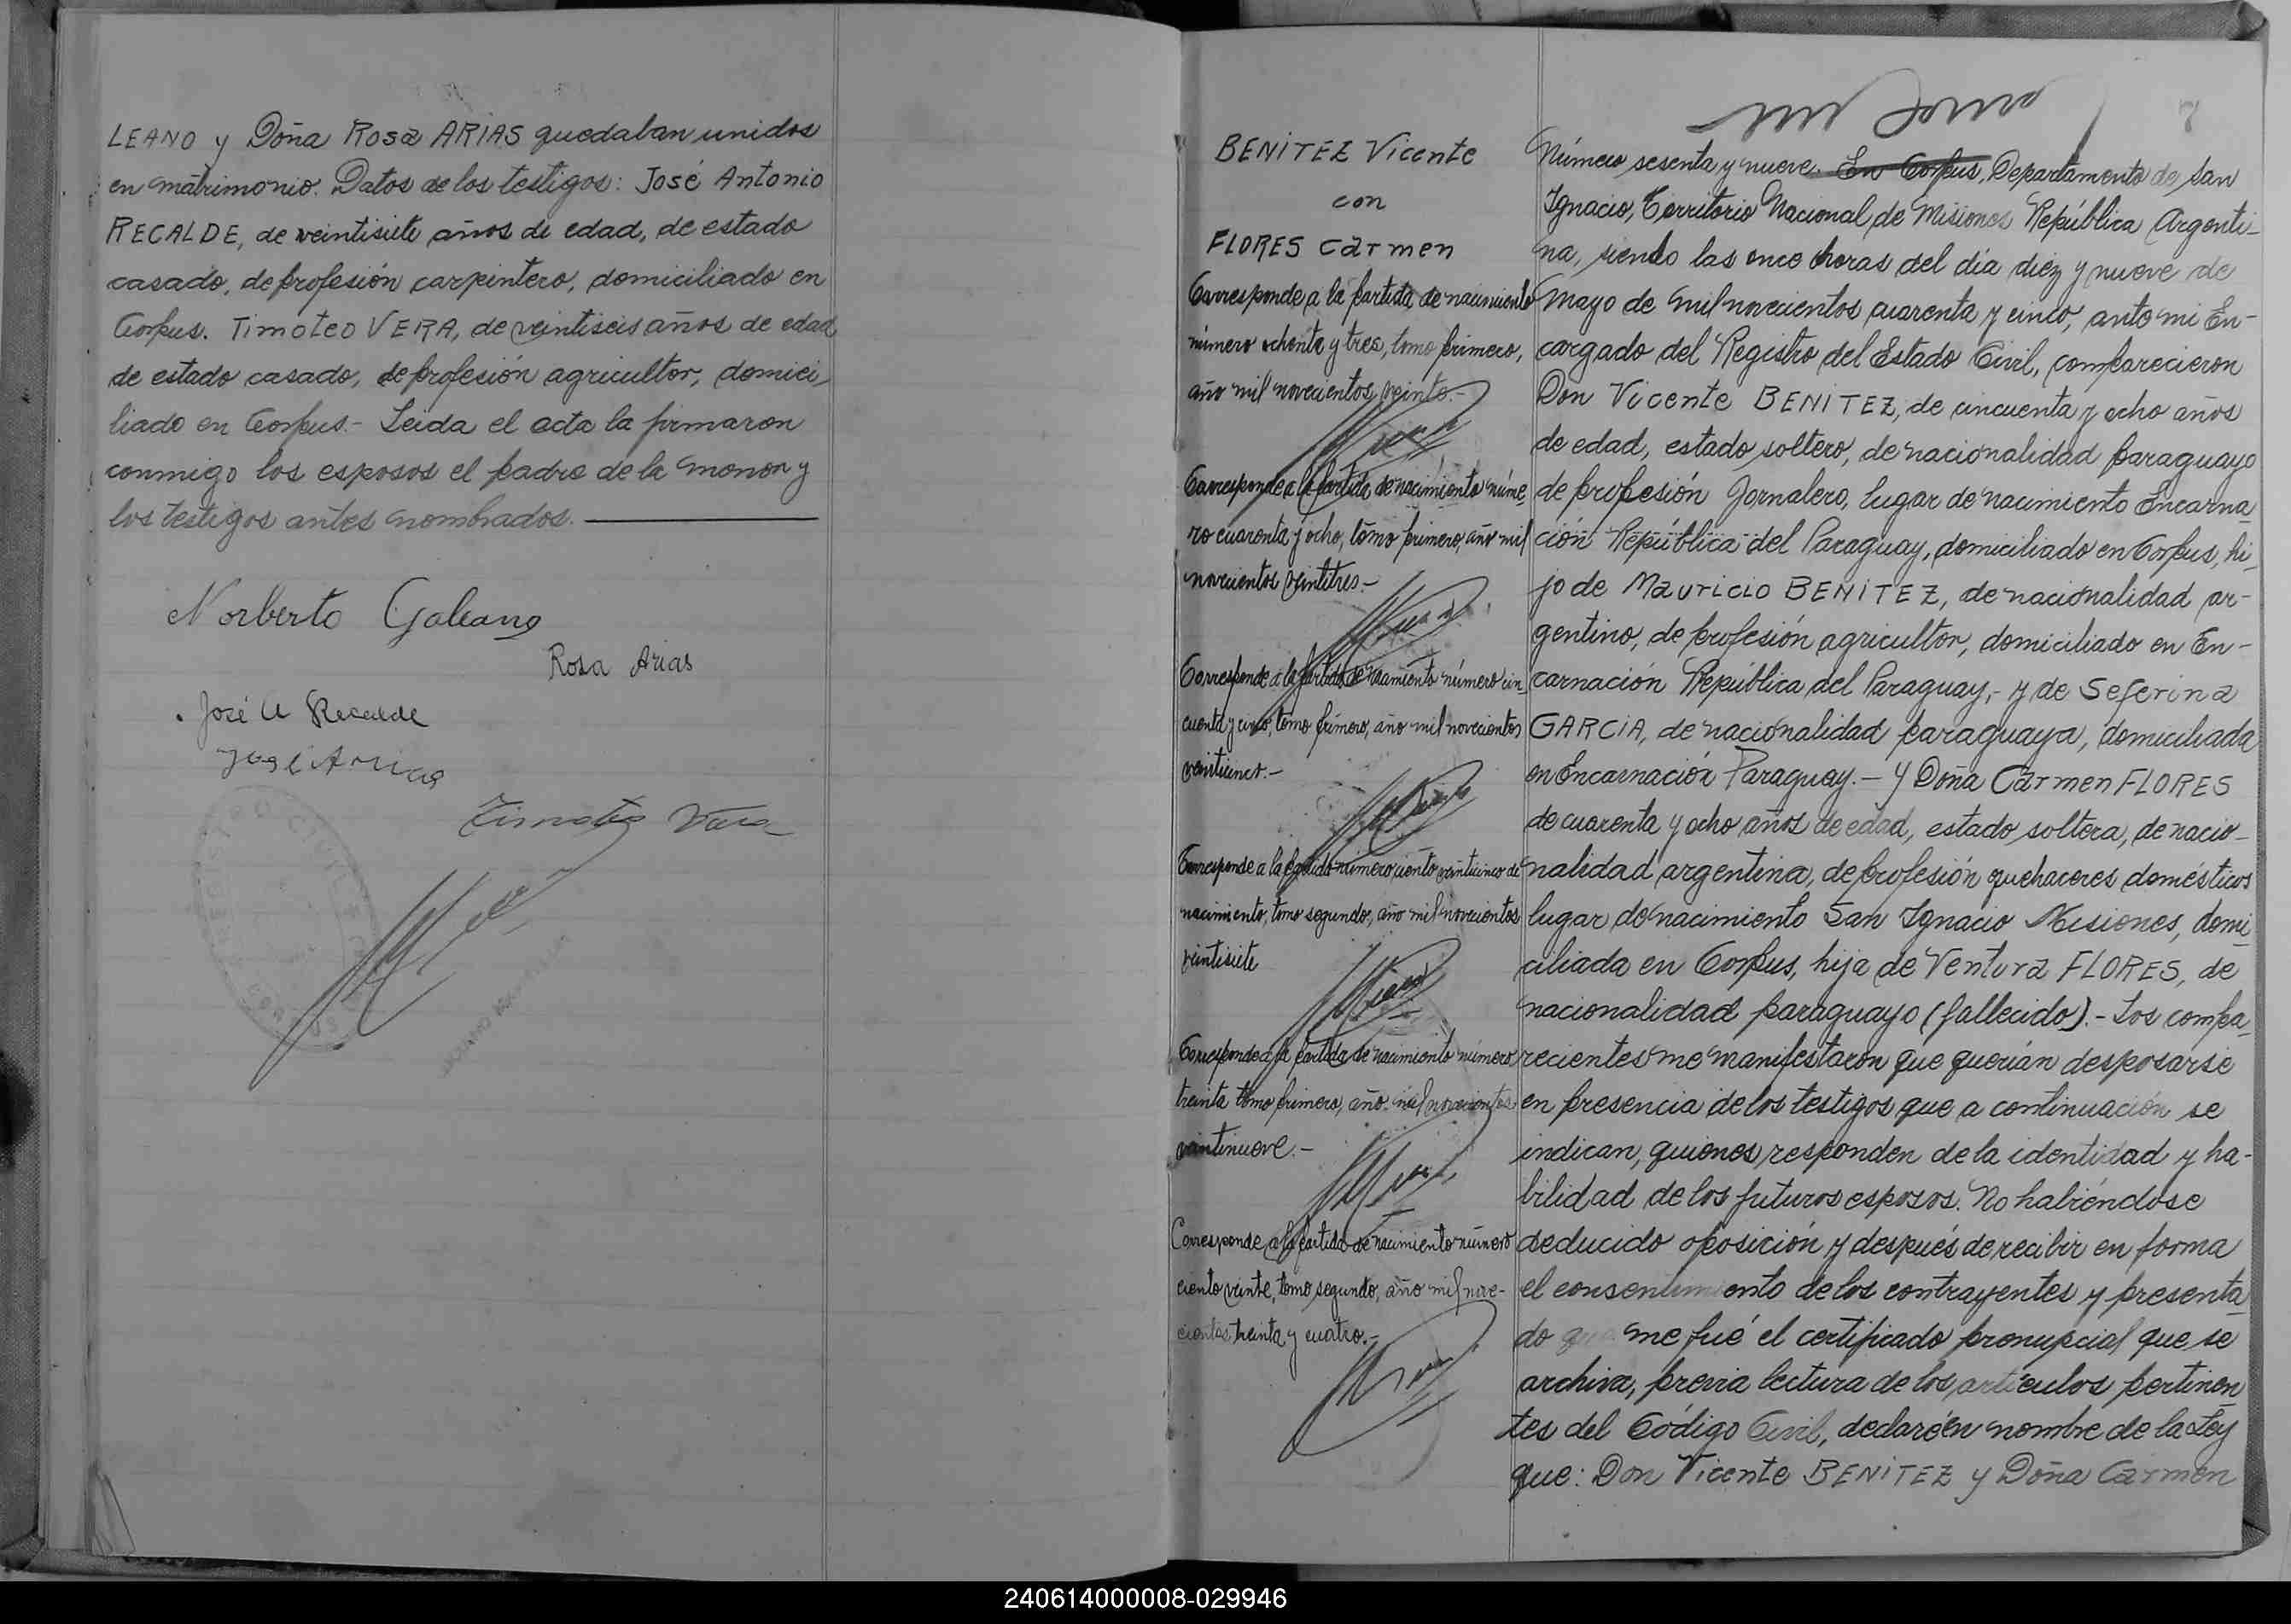 LEANO y Doña Rosa ARIAS quedaban unidos
en matrimonio. Datos de los testigos: José Antonio
RECALDE, de veintisiete años de edad, de estado
casado, de profesión carpintero, domiciliado en
Corpus. Timoteo VERA, de veintiseis años de edad
de estado casado, de profesión agricultor, domici-
liado en Corpus.- Leida el acta la firmaron
conmigo los esposos el padre de la menor y
los testigos antes nombrados.
Norberto Galeano
Rosa Arias
José A Recalde
José Arias
Timoteo Vera
BENITEZ Vicente
con
FLORES Carmen
Corresponde a la partida de nacimiento
número ochenta y tres, tomo primero,
año mil novecientos veinte.-
Corresponde a la partida de nacimiento núme
ro cuarenta y ocho, tomo primero, año mil
novecientos veintitres.-
Corresponde a la partida de nacimiento número cin
cuenta y cinco, tomo primero, año mil novecientos
veinticinco.-
Corresponde a la partida número ciento veinticinco de
nacimiento, tomo segundo, año mil novecientos
veintisiete
Corresponde a la partida de nacimiento número
treinta tomo primero, año mil novecientos
veintinueve.-
Corresponde a la partida de nacimiento número
ciento veinte, tomo segundo, año mil nove-
cientos treinta y cuatro.-
7
Número sesenta y nueve. En Corpus, Departamento de San
Ignacio, Territorio Nacional de Misiones República Argenti-
na, siendo las once horas del día diez y nueve de
Mayo de mil novecientos cuarenta y cinco, ante mi En-
cargado del Registro del Estado Civil, comparecieron
Don Vicente BENITEZ, de cincuenta y ocho años
de edad, estado soltero, de nacionalidad paraguayo
de profesión Jornalero, lugar de nacimiento Encarna
ción República del Paraguay, domiciliado en Corpus, hi
jo de Mauricio BENITEZ, de nacionalidad ar-
gentino, de profesión agricultor, domiciliado en En-
carnación República del Paraguay,- y de Seferina
GARCIA, de nacionalidad paraguaya, domiciliada
en Encarnación Paraguay.- Y Doña Carmen FLORES
de cuarenta y ocho años de edad, estado soltera, de nacio-
nalidad argentina, de profesión quehaceres domésticos
lugar de nacimiento San Ignacio Misiones, domi
ciliada en Corpus, hija de Ventura FLORES, de
nacionalidad paraguayo (fallecido).- Los compa
recientes me manifestaron que querían desposarse
en presencia de los testigos que a continuación se
indican, quienes responden de la identidad y ha-
bilidad de los futuros esposos. No habiéndose
deducido oposición y después de recibir en forma
el consentimiento de los contrayentes y presenta
do que me fué el certificado prenupcial que se
archiva, previa lectura de los artículos pertinen
tes del Código Civil, declaré en nombre de la Ley
que: Don Vicente BENITEZ y Doña Carmen
240614000008-029946